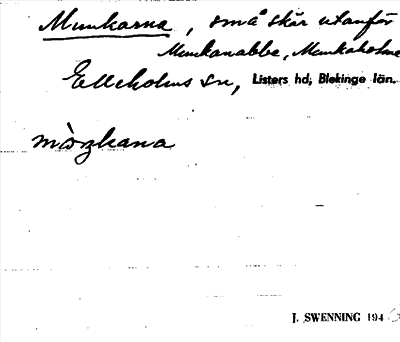 Munkarna, små skär utanför
Munkanabbe, Munkaholme
Elleholms sn, Listers hd, Blekinge län.
J. SWENNING 194